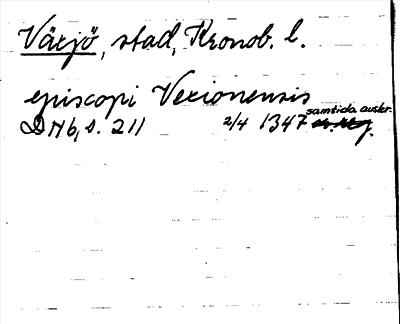 Växjö, stad, Kronob. l.
episcopi Vexionensis
samtida avskr.
DN 6, s. 211 2/4 1347